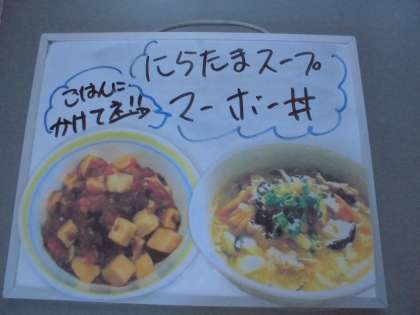 にらたまスープ
マーボー丼
ごはんに
かけてネ!!